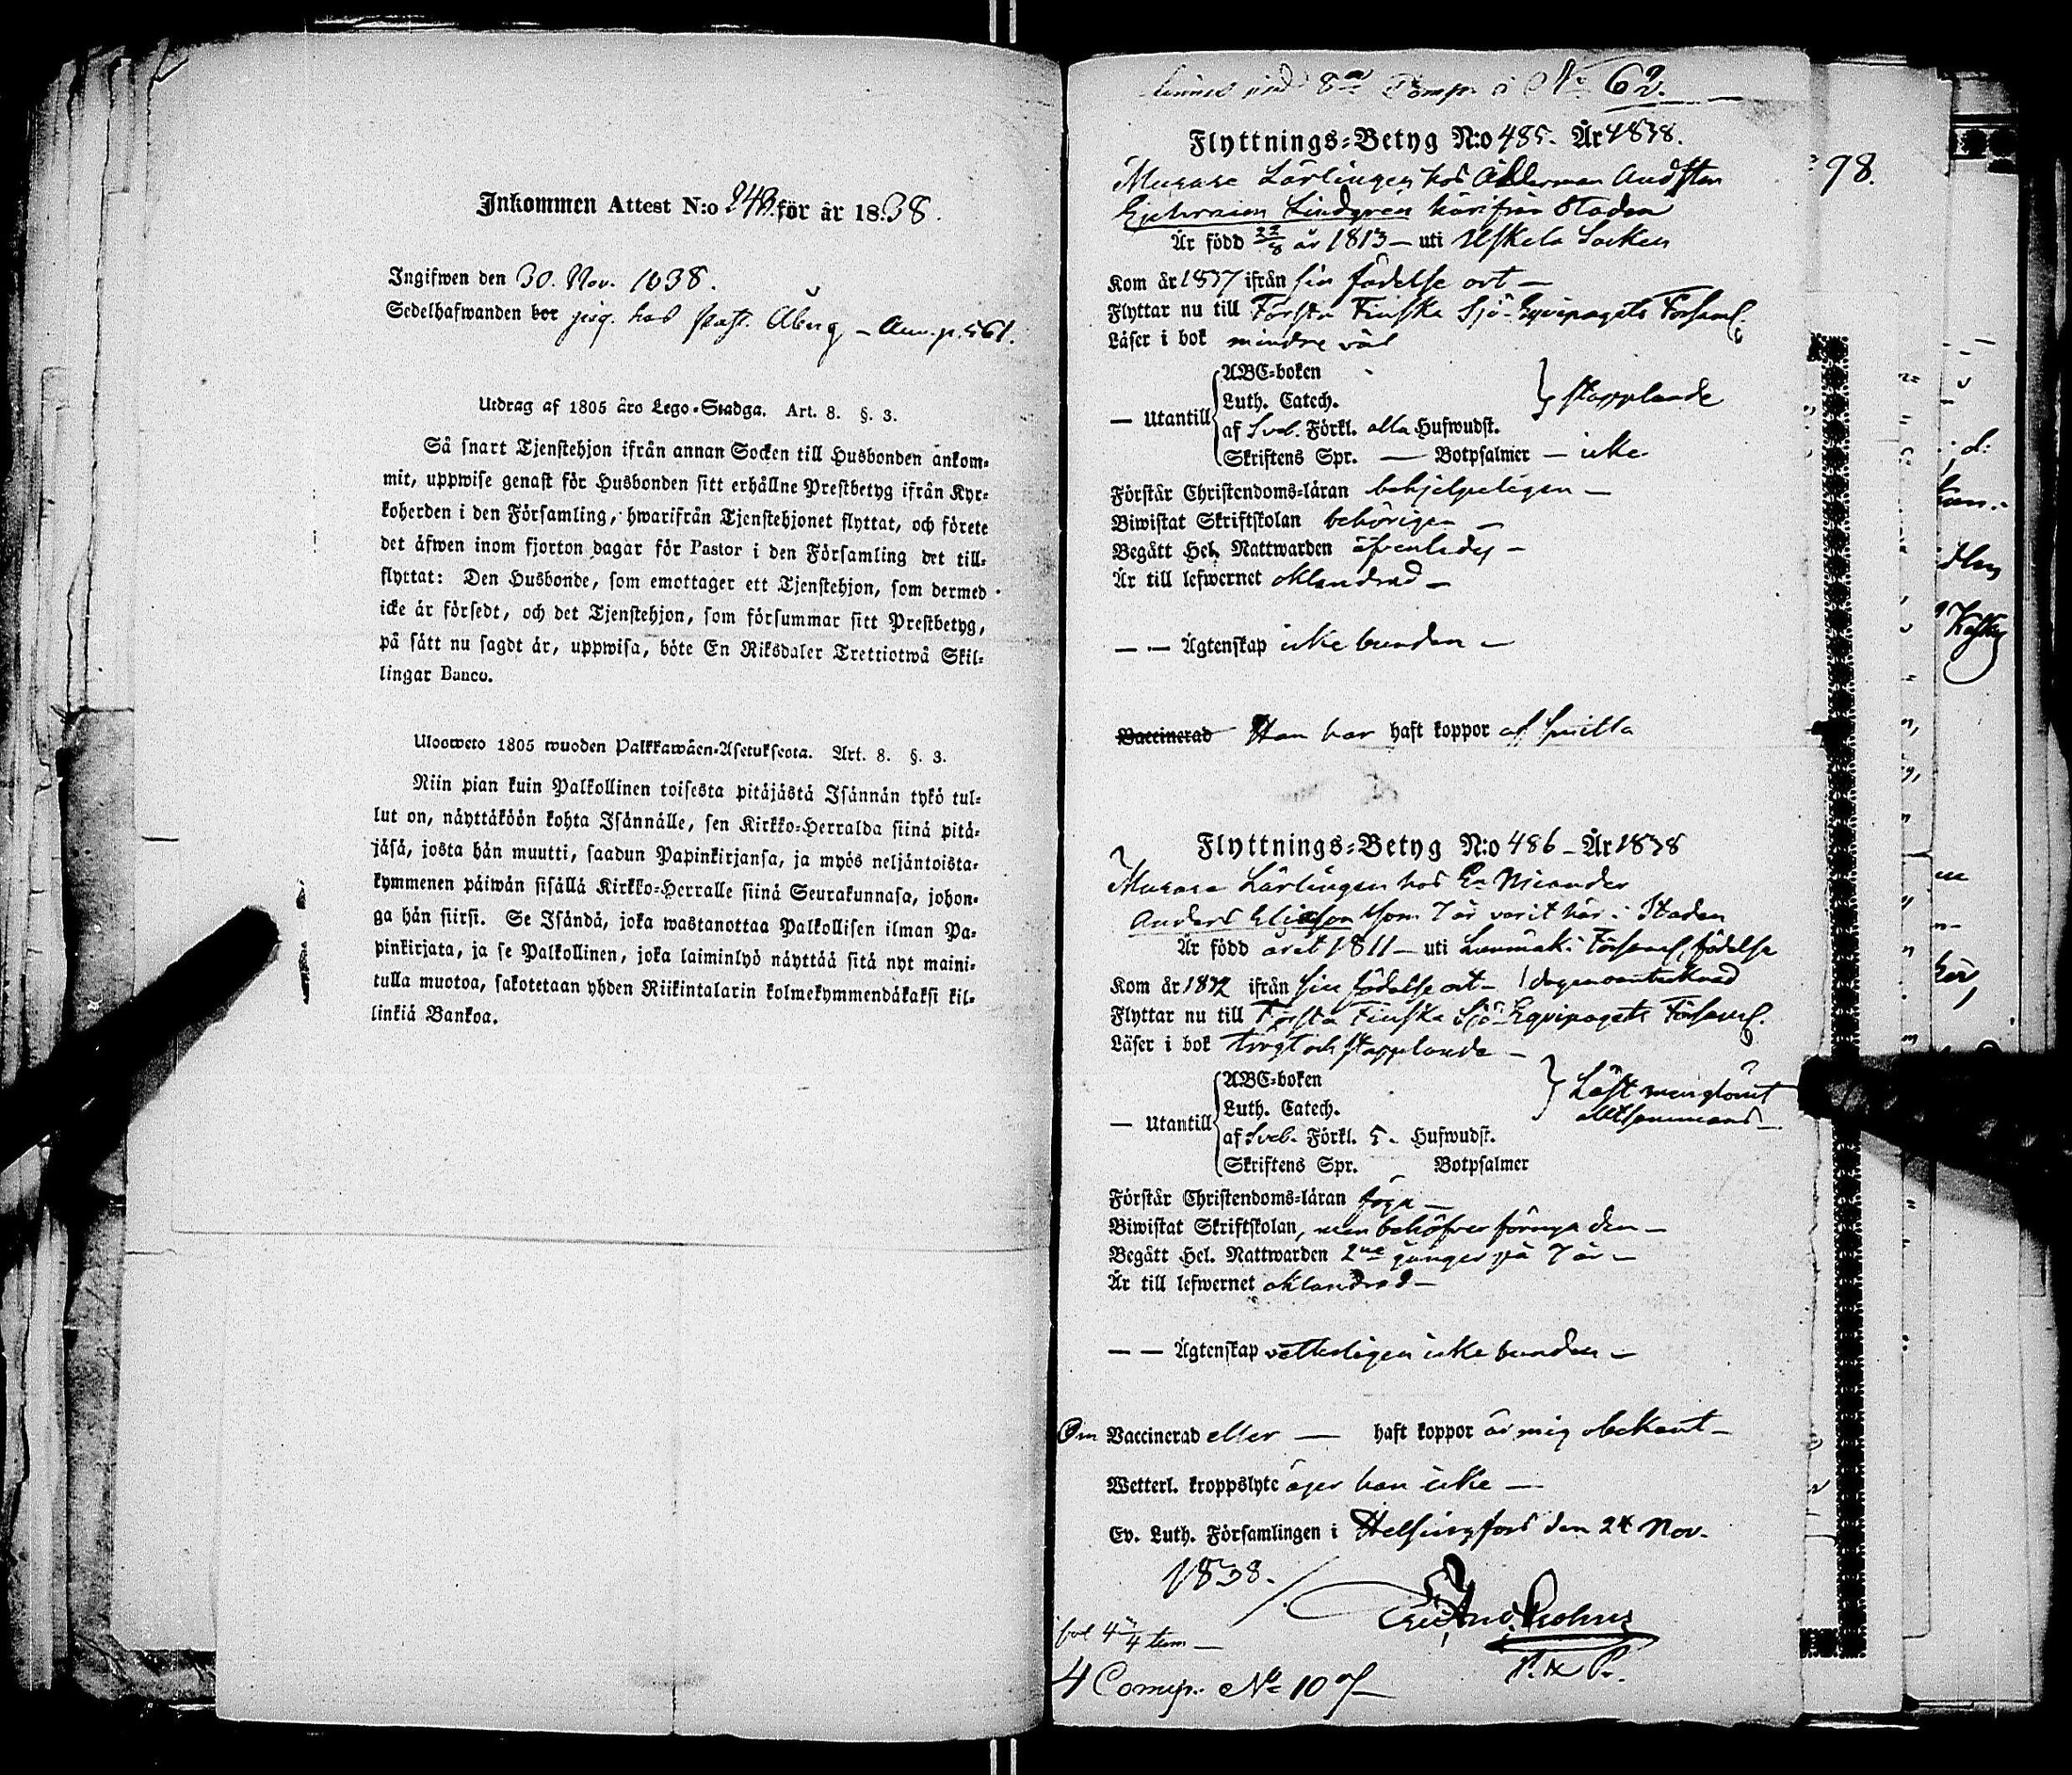 Inkommen Attest N:o 248. för år 1838.
Ingifwen den 30. Nov. 1838.
Sedelhafwanden bor pig. hos Åberg – p. 561.
Utdrag af 1805 åro Lego-Stadga. Art. 8. §. 3.
Så snart Tjenstehjon ifrån annan Socken till Husbonden ankom-
mit, uppwise genast för Husbonden sitt erhållne Prestbetyg ifrån Kyr-
koherden i den Församling, hwarifrån Tjenstehjonet flyttat, och förete
det äfwen inom fjorton dagar för Pastor i den Församling det till-
flyttat: Den Husbonde, som emottager ett Tjenstehjon, som dermed
icke är försedt, och det Tjenstehjon, som försummar sitt Prestbetyg,
på sätt nu sagdt är, uppwisa, böte En Riksdaler Trettiotwå Skil-
lingar Banco.
Uloosweto 1805 wuoden Palkkawäen-Asetukseota. Art. 8. §. 3.
Niin pian kuin Palkollinen toisesta pitäjästä Isännän tykö tul-
lut on, näyttäköön kohta Isännälle, sen Kirkko-Herralda siinä pitä-
jäsä, josta hän muutti, saadun Papinkirjansa, ja myös neljäntoista-
kymmenen päiwän sisällä Kirkko-Herralle siinä Seurakunnasa, johon-
ga hän siirsi. Se Isändä, joka wastanottaa Palkollisen ilman Pa-
pinkirjata, ja se Palkollinen, joka laiminlyö näyttää sitä nyt maini-
tulla muotoa, sakotetaan yhden Riikintalarin kolmekymmendäkaksi kil-
linkiä Bankoa.
8de Comp. No 62.
Flyttnings-Betyg N:o 485. År 1838.
Murare Lärlingen hos Ålderman
Ephraim Lindgren härifrån Staden
Är född 22/8 år 1813 – uti Uskela Socken
Kom år 1837 ifrån sin födelse ort –
Flyttar nu till Första Finska Sjö-Eqvipagets Förseml.
Läser i bok mindre väl
ABC-boken
Luth. Catech. } stapplande
— Utantill af Sveb. Förkl. alla Hufwudst.
Skriftens Spr. — Botpsalmer — icke
Förstår Christendoms-läran behjelpeligen –
Biwistat Skriftskolan behörigen –
Begått Hel. Nattwarden äfvenledes –
Är till lefwernet oklandrad –
— — Ägtenskap icke bunden –
Vaccinerad Han har haft koppor
Flyttnings-Betyg N:o 486 – År 1838
Murare Lärlingen hos En Nicander
Anders Eliasson som 7 år varit här i Staden
Är född året 1811 – uti Lonmäki Förseml, födelse
Kom år 1832 ifrån sin födelse ort – / dagen oantecknad
Flyttar nu till Första Finska Sjö-Eqvipagets Förseml.
Läser i bok trögt och stapplande –
ABC-boken
Luth. Catech. } Läst men glömt
alltsammans –
— Utantill af Sveb. Förkl. 5. Hufwudst.
Skriftens Spr. Botpsalmer
Förstår Christendoms-läran föga –
Biwistat Skriftskolan, men behöfver förnya den –
Begått Hel. Nattwarden 2ne gånger på 7 år –
Är till lefwernet oklandrad –
— — Ägtenskap vetterligen icke bunden –
Om Vaccinerad eller — haft koppor är mig obekant –
Wetterl. kroppslyte äger han icke —
Ev. Luth. Församlingen i Helsingfors den 24 Nov.
1838.
4 Comp. No 107
98.